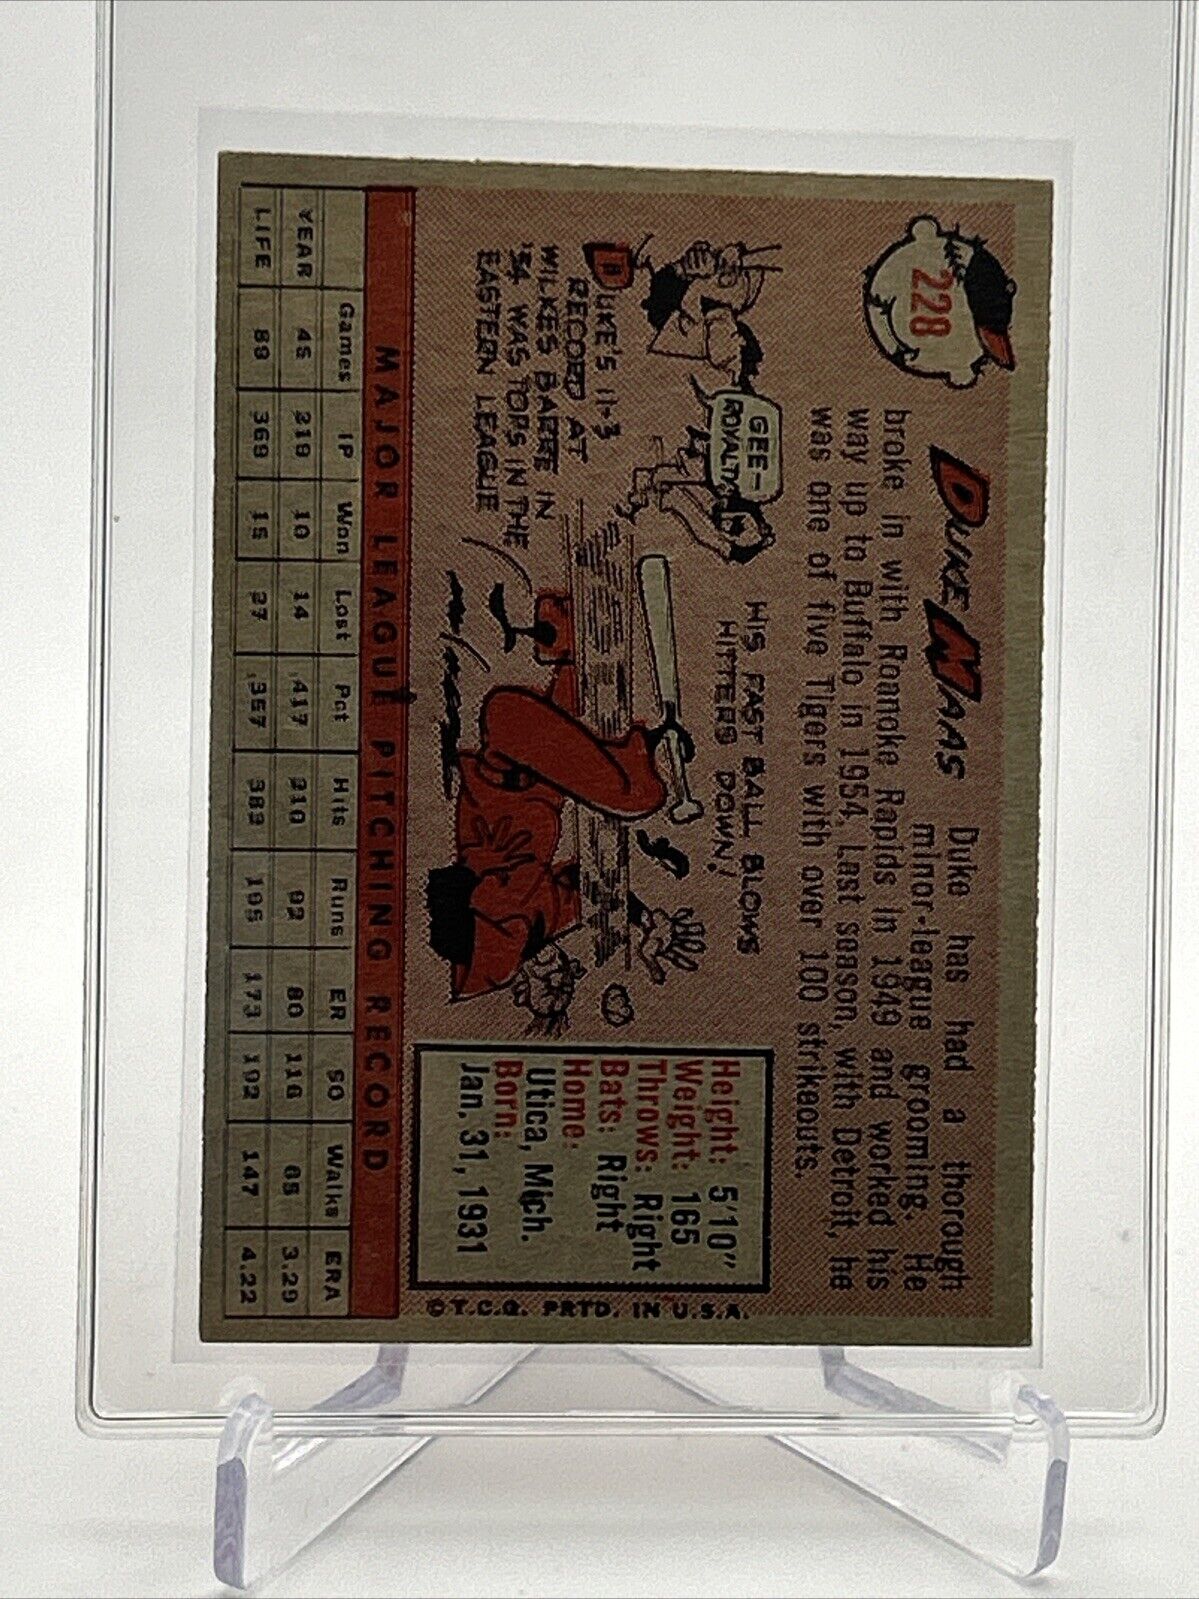 228
DUKE MAAS
Duke has had a thorough
minor-league grooming. He
broke in with Roanoke Rapids in 1949 and worked his
way up to Buffalo in 1954. Last season, with Detroit, he
was one of five Tigers with over 100 strikeouts.
GEE—
ROYALTY
DUKE'S 11-3
RECORD AT
WILKES BARRE IN
'54 WAS TOPS IN THE
EASTERN LEAGUE
HIS FAST BALL BLOWS
HITTERS DOWN!
Height: 5'10"
Weight: 165
Throws: Right
Bats: Right
Home:
Utica, Mich.
Born:
Jan. 31, 1931
©T.C.G. PRTD. IN U.S.A.
MAJOR LEAGUE PITCHING RECORD
Games IP Won Lost Pct Hits Runs ER SO Walks ERA
YEAR 45 219 10 14 .417 210 92 80 116 65 3.29
LIFE 88 369 15 27 .357 383 195 173 192 147 4.22